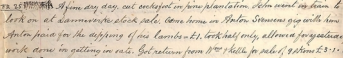 FR 25 A fine dry day, cut cocksfoot in pine plantation John went in train to
look on at Dannevirke stock sale. Came home in Anton Stevens gig with him
Anton paid for the dipping of his lambs £1. took half only, allowed for extra
work done in getting in oats. Got return from Wms & Kettle for sale of 9 skins £3-1-